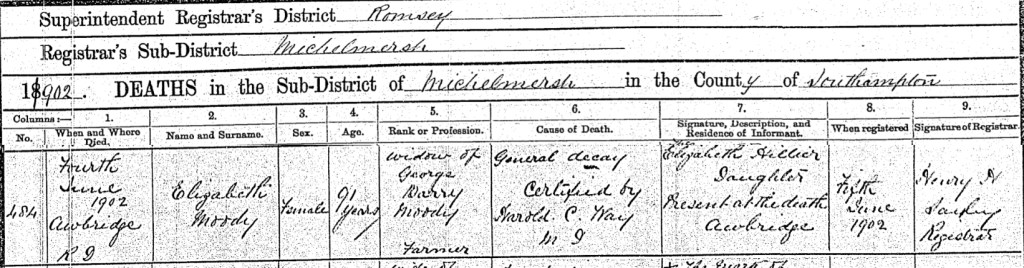 Superintendent Registrar's District Romsey
Registrar's Sub-District Michelmersh
1902. DEATHS in the Sub-District of Michelmersh in the County of Southampton
Columns:— 1. 2. 3. 4. 5. 6. 7. 8. 9.
No. When and Where Died. Name and Surname. Sex. Age. Rank or Profession. Cause of Death. Signature, Description, and Residence of Informant. When registered Signature of Registrar.
484
Fourth
June
1902
Awbridge
R D
Elizabeth
Moody
Female
91
years
Widow of
George
Moody
Farmer
General decay
Certified by
Harold. C. Way
M D
Elizabeth Hillier
Daughter
Present at the death
Awbridge
Fifth
June
1902
Henry H
Registrar